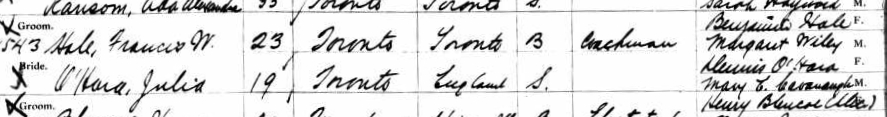 Ransom, Ada Alexandra 35 Toronto Toronto S. Sarah Haywood M.
Groom. Benjamin Hale F.
543 Hale, Francis W. 23 Toronto Toronto B Coachman Margaret Wiley M.
Bride. Dennis O'Hara F.
O'Hara, Julia 19 Toronto England S. Mary E. Cavanaugh M.
Groom. Henry Blencoe